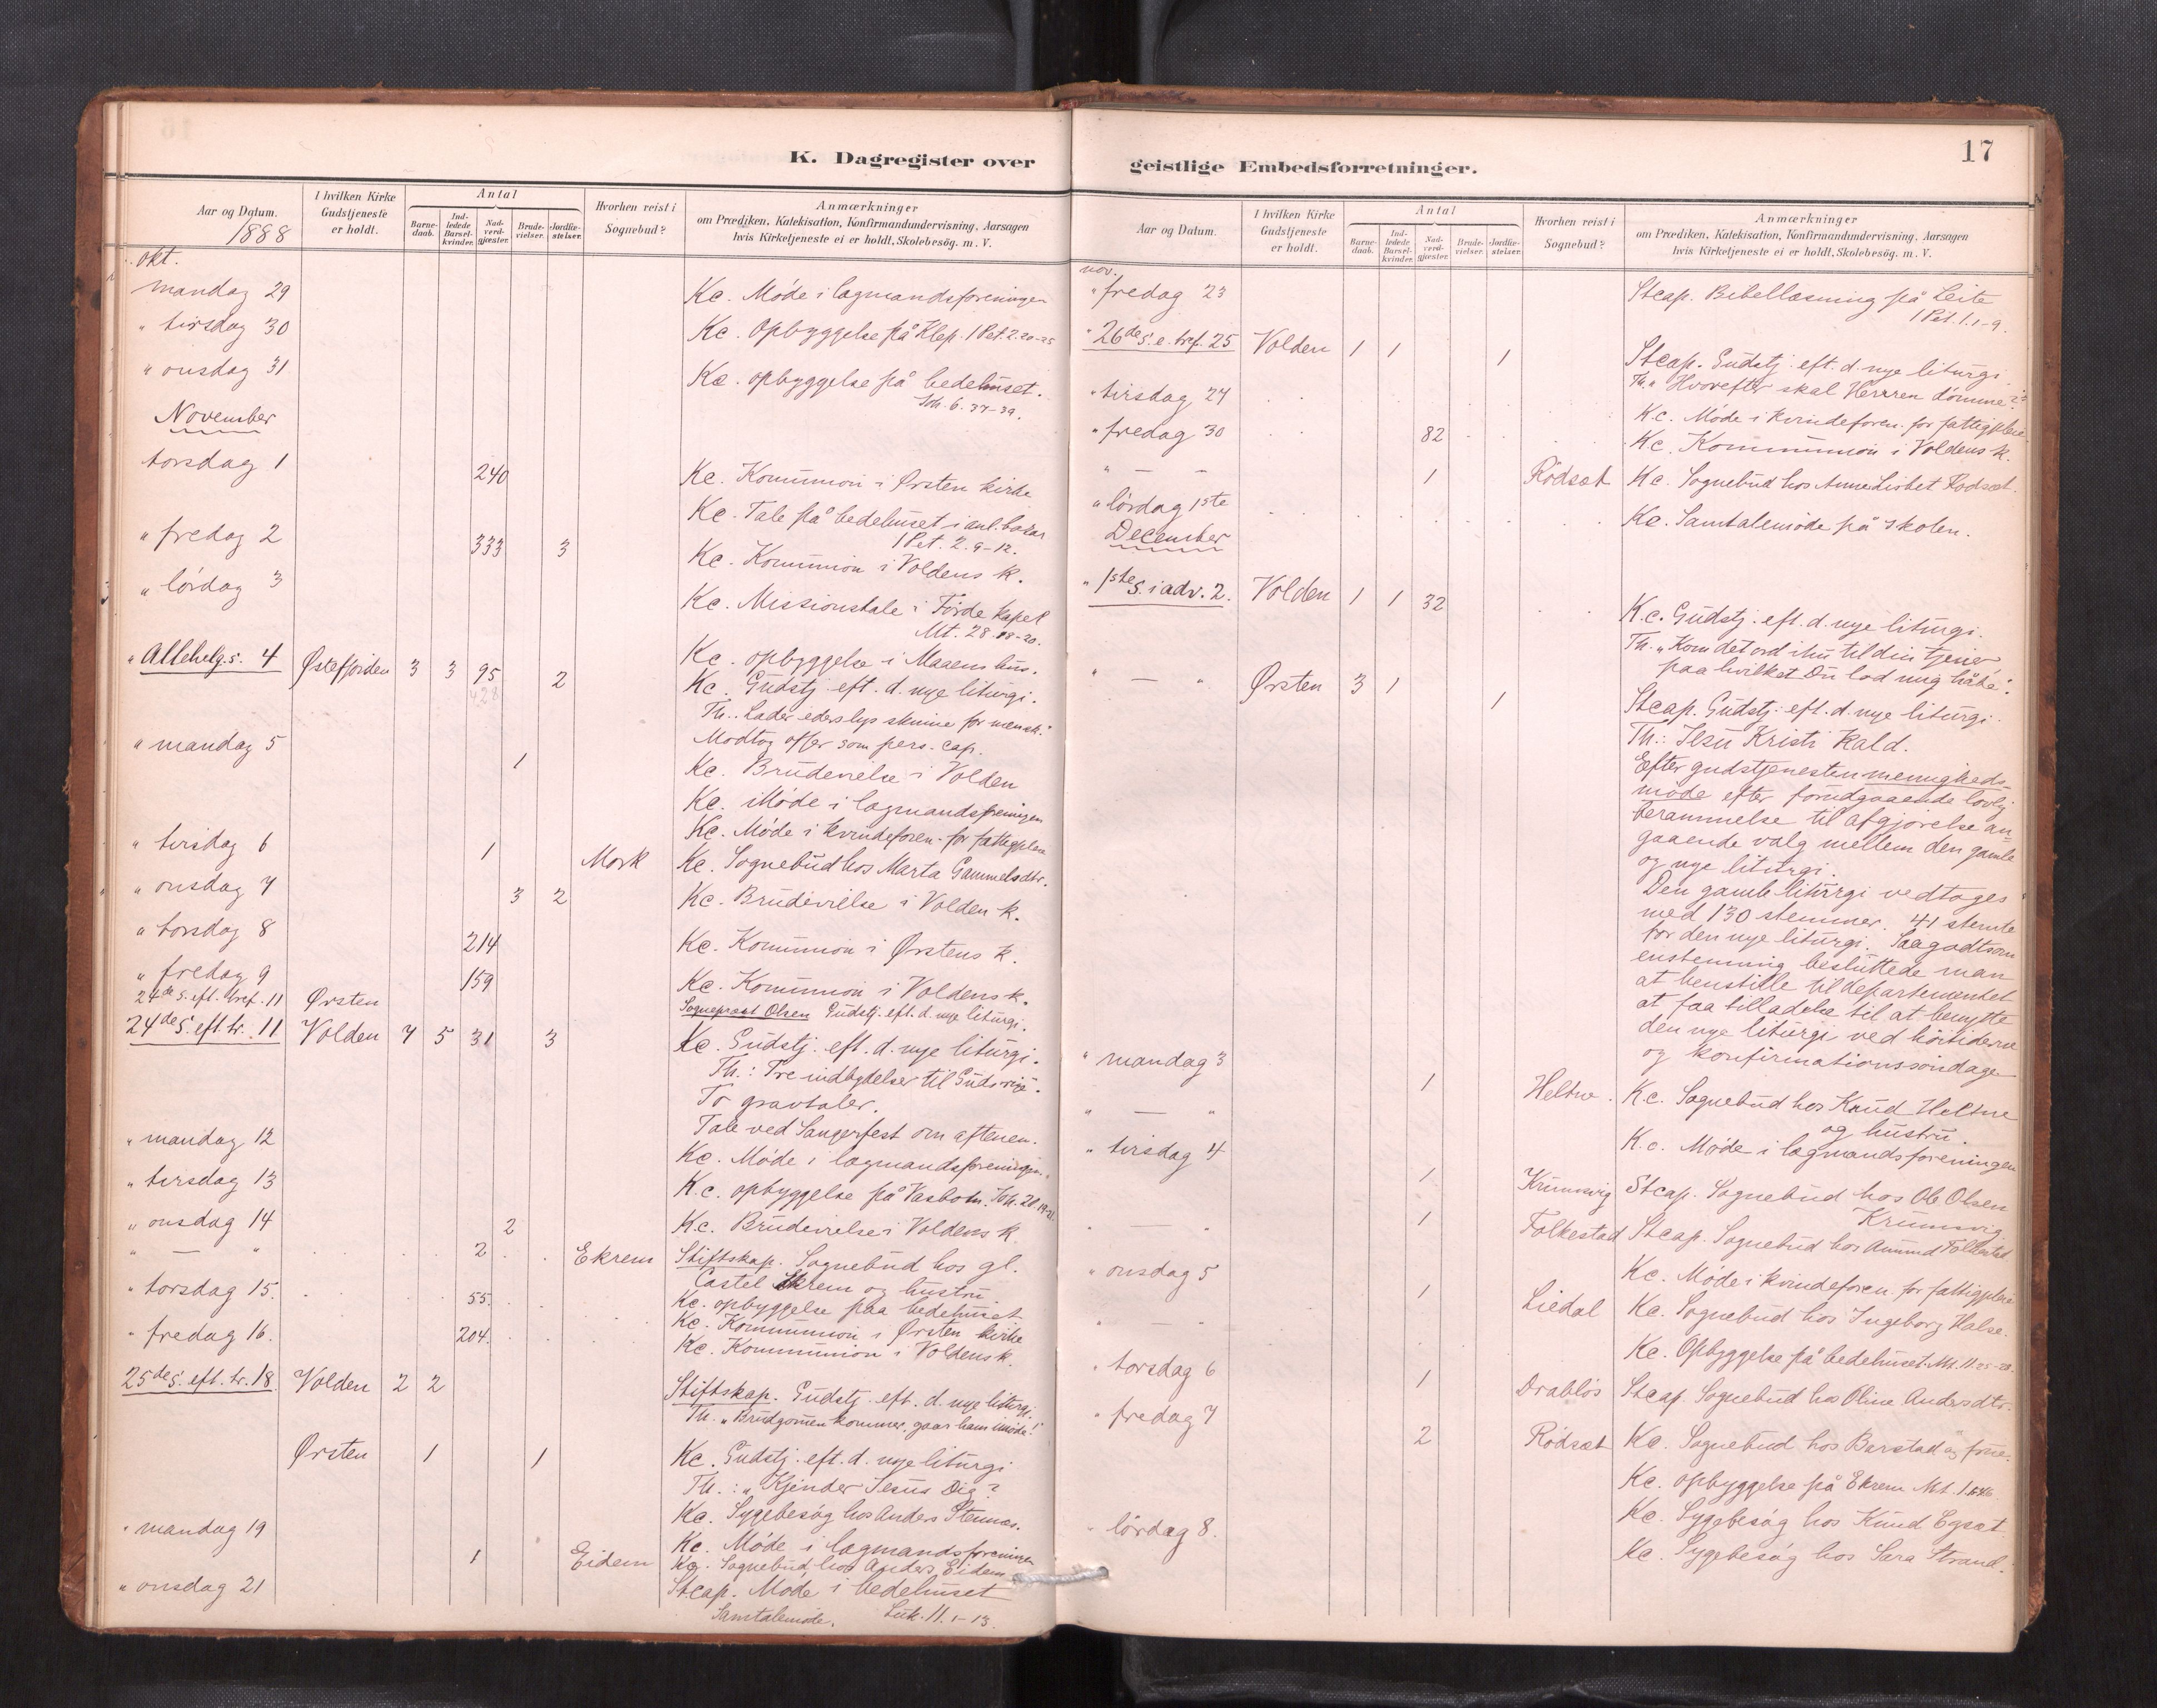 K. Dagregister over
Aar og Datum.
1888
I hvilken Kirke Gudstjeneste er holdt.
Antal
Barne-daab.
Ind-ledede Barsel-kvinder.
Nad-verd-gjæster.
Brude-vielser.
Jordfæ-stelser.
Hvorhen reist i Sognebud?
Anmærkninger
om Prædiken, Katekisation, Konfirmandundervisning, Aarsagen
hvis Kirketjeneste ei er holdt, Skolebesög. m. V.
Okt.
mandag 29 Kc. Møde i lagmandsforeningen
" tirsdag 30 Kc. Opbyggelse på Klep. 1 Pet. 2. 20-25
" onsdag 31 Kc. opbyggelse på bedehuset.
Joh. 6. 37-39.
November
torsdag 1 240 Kc. Kommunion i Ørsten kirke
Kc. Tale på bedehuset i anl. basar
1 Pet. 2. 9-12.
" fredag 2 333 3 Kc. Kommunion i Voldens k.
" lørdag 3 Kc. Missionstale i Førde kapel
Mt. 28. 18-20.
Kc. opbyggelse i Maaens hus.
" Allehelg. s. 4 Østefjorden 3 3 95 2 Kc. Gudstj. eft. d. nye liturgi.
428
Th.: Lader eders lys skinne for mensk."
Modtog offer som pers. cap.
" mandag 5 1 Kc. Brudevielse i Volden
Kc. Møde i lagmandsforeningen
Kc. Møde i kvindeforen. for fattigpleie
" tirsdag 6 1 Mork Kc. Sognebud hos Marta Gammelsdtr.
" onsdag 7 3 2 Kc. Brudevielse i Volden k.
" torsdag 8 214 Kc. Kommunion i Ørstens k.
" fredag 9 159 Kc. Kommunion i Voldens k.
24de s. eft. tref. 11 Ørsten Sogneprest Olsen Gudstj. eft. d. nye liturgi.
24de s. eft. tr. 11 Volden 7 5 31 3 Kc. Gudstj. eft. d. nye liturgi.
Th.: Tre indbydelser til Guds rige.
To gravtaler.
Tale ved Sangerfest om aftenen.
" mandag 12 Kc. Møde i lagmandsforeningen.
" tirsdag 13 K.c. opbyggelse på Vasbotn. Joh. 20. 19-21.
" onsdag 14 2 Kc. Brudevielse i Voldens k.
" — " 2 Ekrem Stiftskap. Sognebud hos gl.
Castel Ekrem og hustru.
" torsdag 15. 55. Kc. opbyggelse paa bedehuset
Kc. Kommunion i Ørsten kirke
" fredag 16. 204. Kc. Kommunion i Voldens k.
25de s. eft. tr. 18 Volden 2 2 Stiftskap. Gudstj. eft. d. nye liturgi.
Th. "Brudgommen kommer, gaar ham imøde!"
Ørsten 1 1 Kc. Gudstj. eft. d. nye liturgi
Th.: "Kjender Jesus Dig?
Kc. Sygebesøg hos Anders Stennes.
" mandag 19 Kc. Møde i lagmandsforeningen
1 Eidem Kc. Sognebud hos Anders Eidem
" onsdag 21 Stcap. Møde i bedehuset
Samtalemøde. Luk. 11. 1-13.
17
geistlige Embedsforretninger.
Aar og Datum.
I hvilken Kirke Gudstjeneste er holdt.
Antal
Barne-daab.
Ind-ledede Barsel-kvinder.
Nad-verd-gjæster.
Brude-vielser.
Jordfæ-stelser.
Hvorhen reist i Sognebud?
Anmærkninger
om Prædiken, Katekisation, Konfirmandundervisning, Aarsagen
hvis Kirketjeneste ei er holdt, Skolebesög. m. V.
nov.
" fredag 23 Stcap. Bibellæsning på Leite
1 Pet. 1. 1-9.
" 26de s. e. tref. 25 Volden 1 1 1 Stcap. Gudstj. eft. d. nye liturgi.
Th. "Hvorefter skal Herren dømme?"
" tirsdag 27 K.c. Møde i kvindeforen. for fattigpleie
" fredag 30 82 Kc. Kommunion i Voldens k.
" — " 1 Rødsæt Kc. Sognebud hos Anne Lisbet Rødsæt.
" lørdag 1ste Kc. Samtalemøde på skolen.
December
" 1ste s. i adv. 2. Volden 1 1 32 K.c. Gudstj. eft. d. nye liturgi.
Th. "Kom det ord ihu til din tjener,
paa hvilket Du lod mig håbe".
" — " Ørsten 3 1 1 Stcap. Gudstj. eft. d. nye liturgi.
Th.: Jesu Kristi kald.
Efter gudstjenesten menigheds-
møde efter forudgaaende lovlig
berammelse til afgjørelse an-
gaaende valg mellem den gamle
og nye liturgi.
Den gamle liturgi vedtoges
med 130 stemmer. 41 stemte
for den nye liturgi. Saagodtsom
enstemmig besluttede man
at henstille til departementet
at faa tilladelse til at benytte
den nye liturgi ved høitiderne
og konfirmationssøndage
" mandag 3 1 Heltne. K.c. Sognebud hos Knud Heltne
og hustru.
" — " K.c. Møde i lagmandsforeningen
" tirsdag 4 1 Krumsvig Stcap. Sognebud hos Ole Olsen
Krumsvig
" — " 1 Folkestad Stcap. Sognebud hos Amund Folkestad.
" onsdag 5 Kc. Møde i kvindeforen. for fattigpleie
" — " 1 Liedal Kc. Sognebud hos Ingeborg Halse.
Kc. Opbyggelse på bedehuset. Mt. 11. 25-28.
" torsdag 6 1 Drabløs Stcap. Sognebud hos Oline Andersdtr.
" fredag 7 2 Rødsæt Kc. Sognebud hos Barstad og frue.
Kc. opbyggelse på Ekrem Mt. 1.
Kc. Sygebesøg hos Knud Egsæt.
" lørdag 8. Kc. Sygebesøg hos Sara Strand.